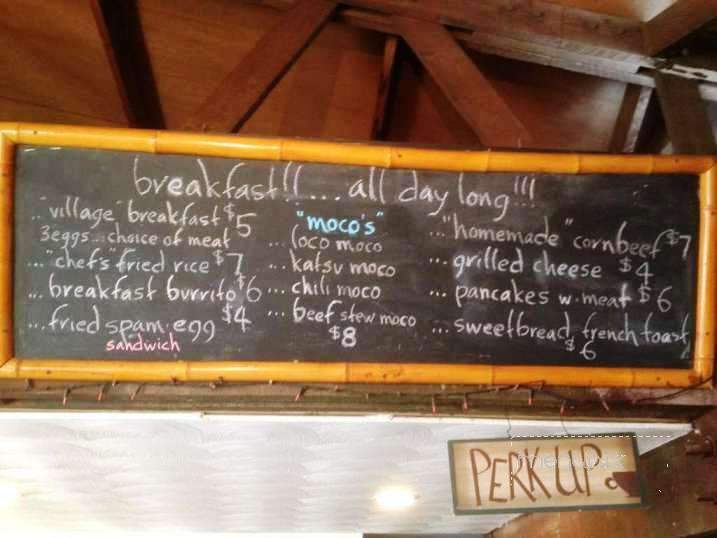 breakfast!!...all day long!!!
.."village" breakfast $5
3eggs...choice of meat
..."chef's" fried rice $7
...breakfast burrito $6
...fried spam.egg $4
sandwich
"moco's"
...loco moco
...katsu moco
...chili moco
...beef stew moco
$8
..."homemade" cornbeef $7
...grilled cheese $4
...pancakes w.meat $6
...sweetbread french toast
$6
PERK UP